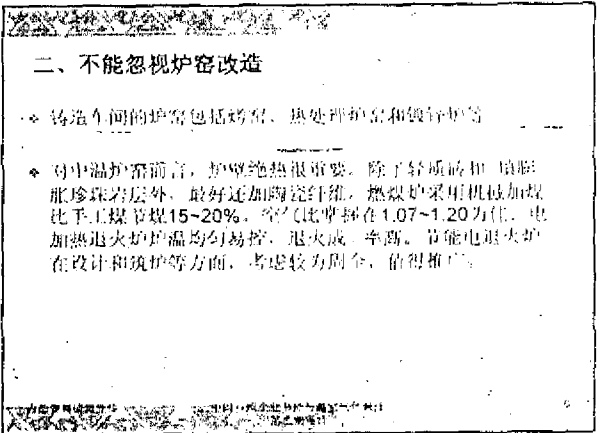 二、不能忽视炉窑改造
铸造车间的炉窑包括烤窑、热处理炉窑和镀锌炉等
对中温炉窑而言，炉壁绝热很重要。除了轻质砖和 膨
胀珍珠岩层外，最好还加陶瓷纤维，燃煤炉采用机械加煤
比手工煤节煤15~20%，空气比掌握在1.07~1.20为佳，电
加热退火炉炉温均匀易控，退火成 率高。节能电退火炉
在设计和筑炉等方面，考虑较为周全，值得推广。